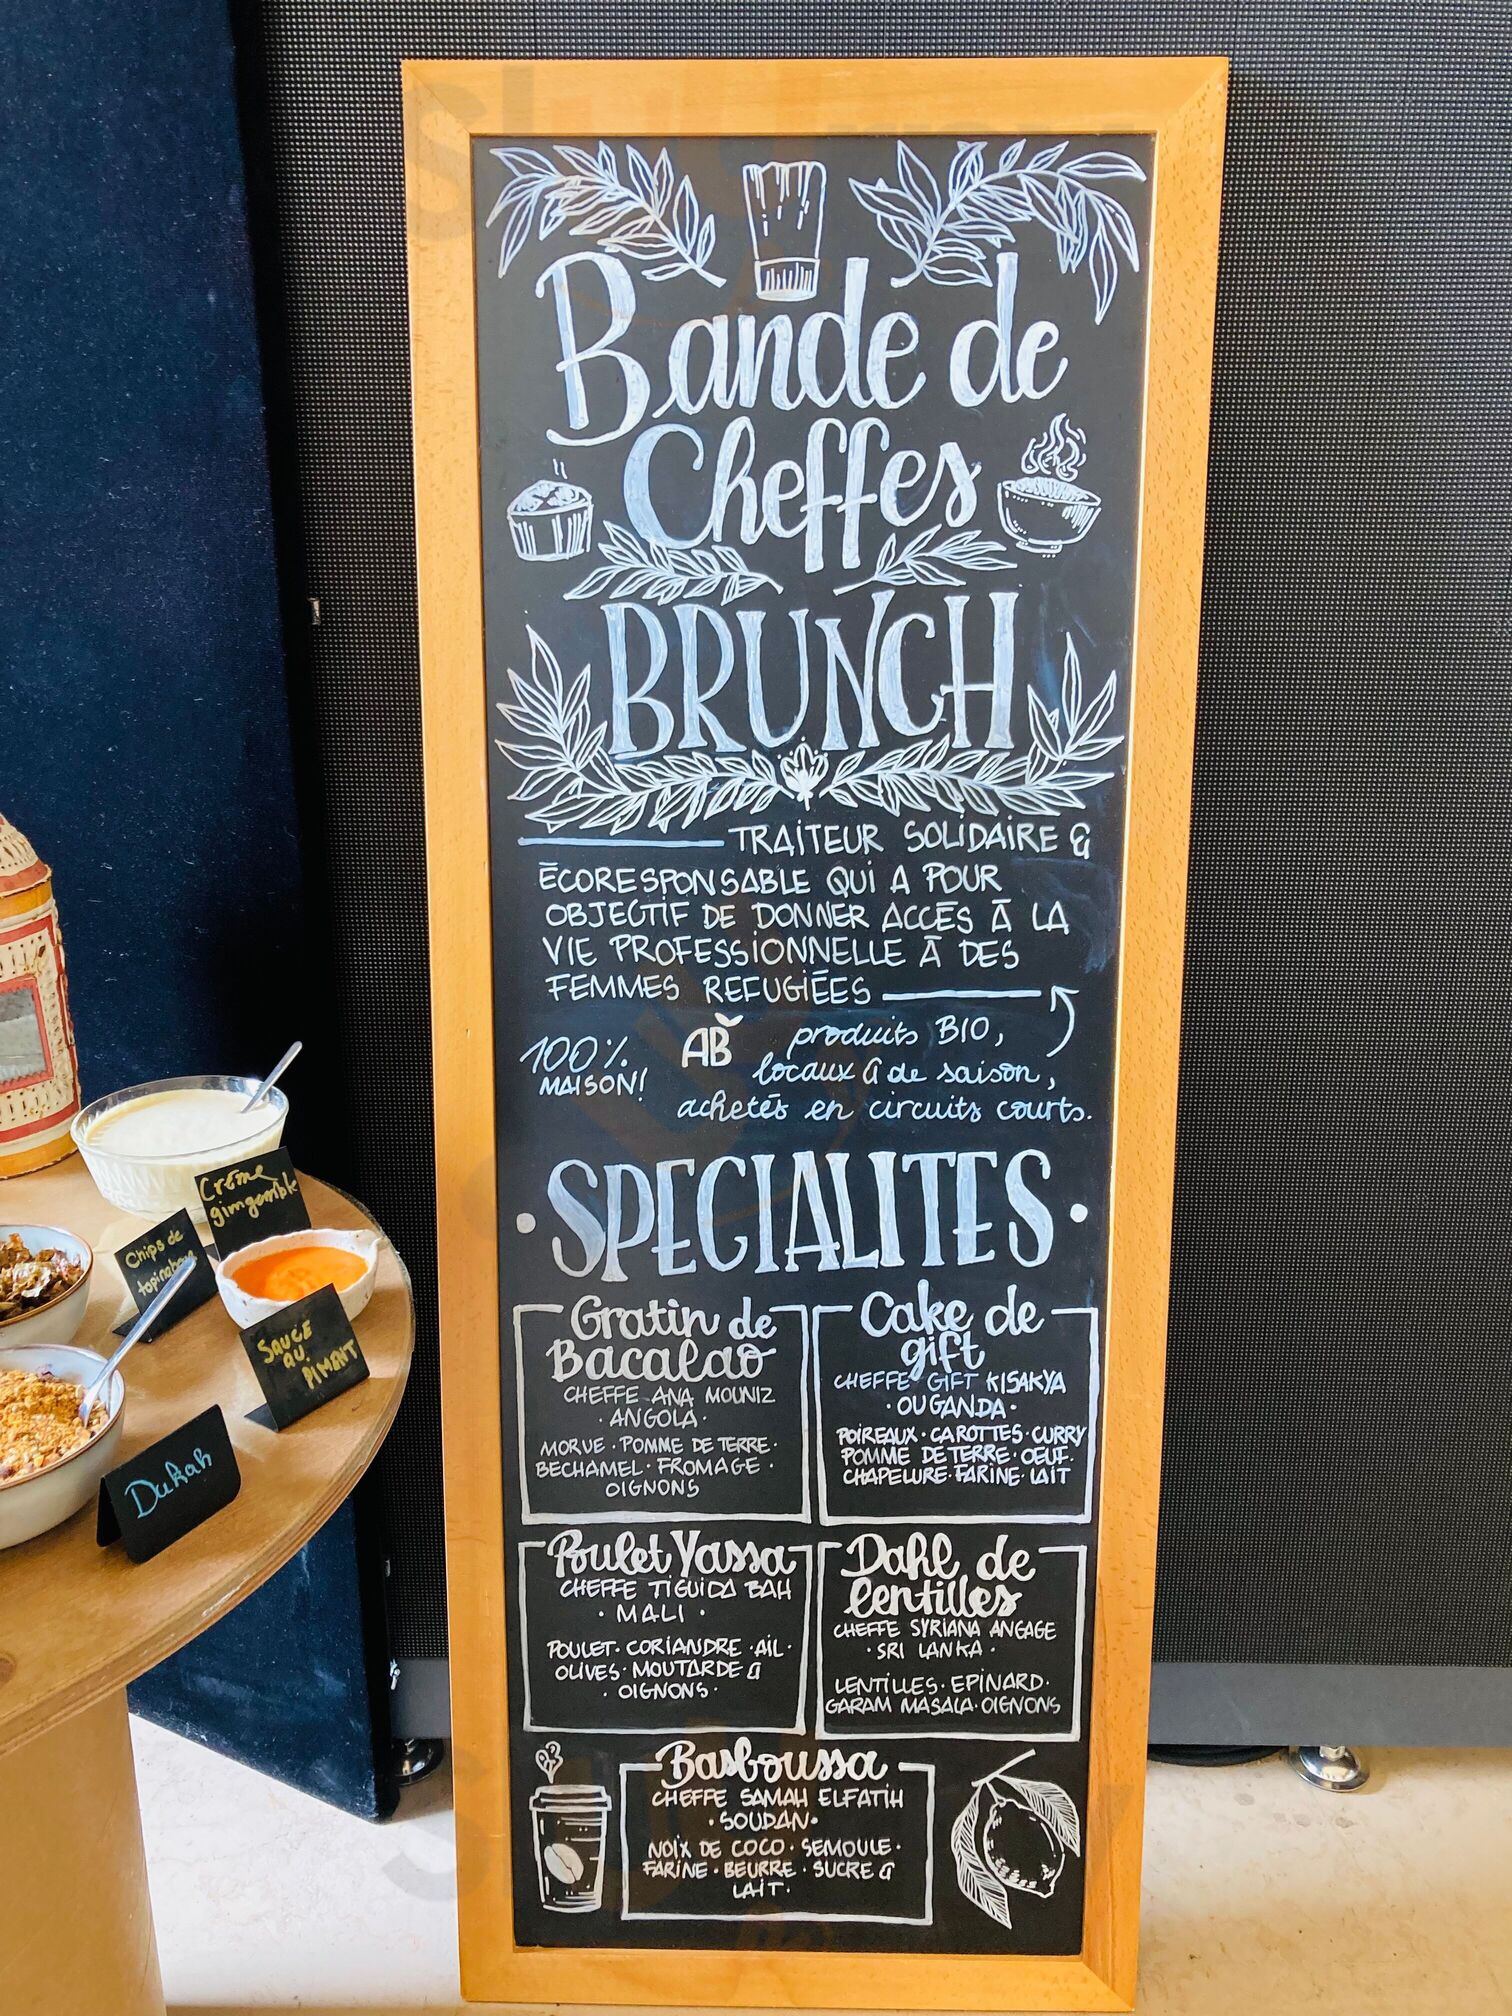 Bande de
Cheffes
BRUNCH
TRAITEUR SOLIDAIRE &
ÉCORESPONSABLE QUI A POUR
OBJECTIF DE DONNER ACCÈS À LA
VIE PROFESSIONNELLE À DES
FEMMES REFUGIÉES
100%
MAISON!
AB
produits BIO,
locaux & de saison,
achetés en circuits courts.
SPECIALITES
Gratin de
Bacalao
CHEFFE ANA MOUNIZ
· ANGOLA ·
MORUE · POMME DE TERRE ·
BECHAMEL · FROMAGE ·
OIGNONS
Cake de
gift
CHEFFE GIFT KISAKYA
· OUGANDA ·
POIREAUX · CAROTTES · CURRY
POMME DE TERRE · OEUF ·
CHAPELURE · FARINE · LAIT
Poulet Yassa
CHEFFE TIGUIDA BAH
· MALI ·
POULET · CORIANDRE · AIL ·
OLIVES · MOUTARDE &
· OIGNONS ·
Dahl de
lentilles
CHEFFE SYRIANA ANGAGE
· SRI LANKA ·
LENTILLES · EPINARD ·
GARAM MASALA · OIGNONS
Basboussa
CHEFFE SAMAH ELFATIH
· SOUDAN ·
NOIX DE COCO · SEMOULE ·
FARINE · BEURRE · SUCRE &
LAIT ·
Crème
gingembre
Chips de
SAUCE
AU
PIMENT
Dukah